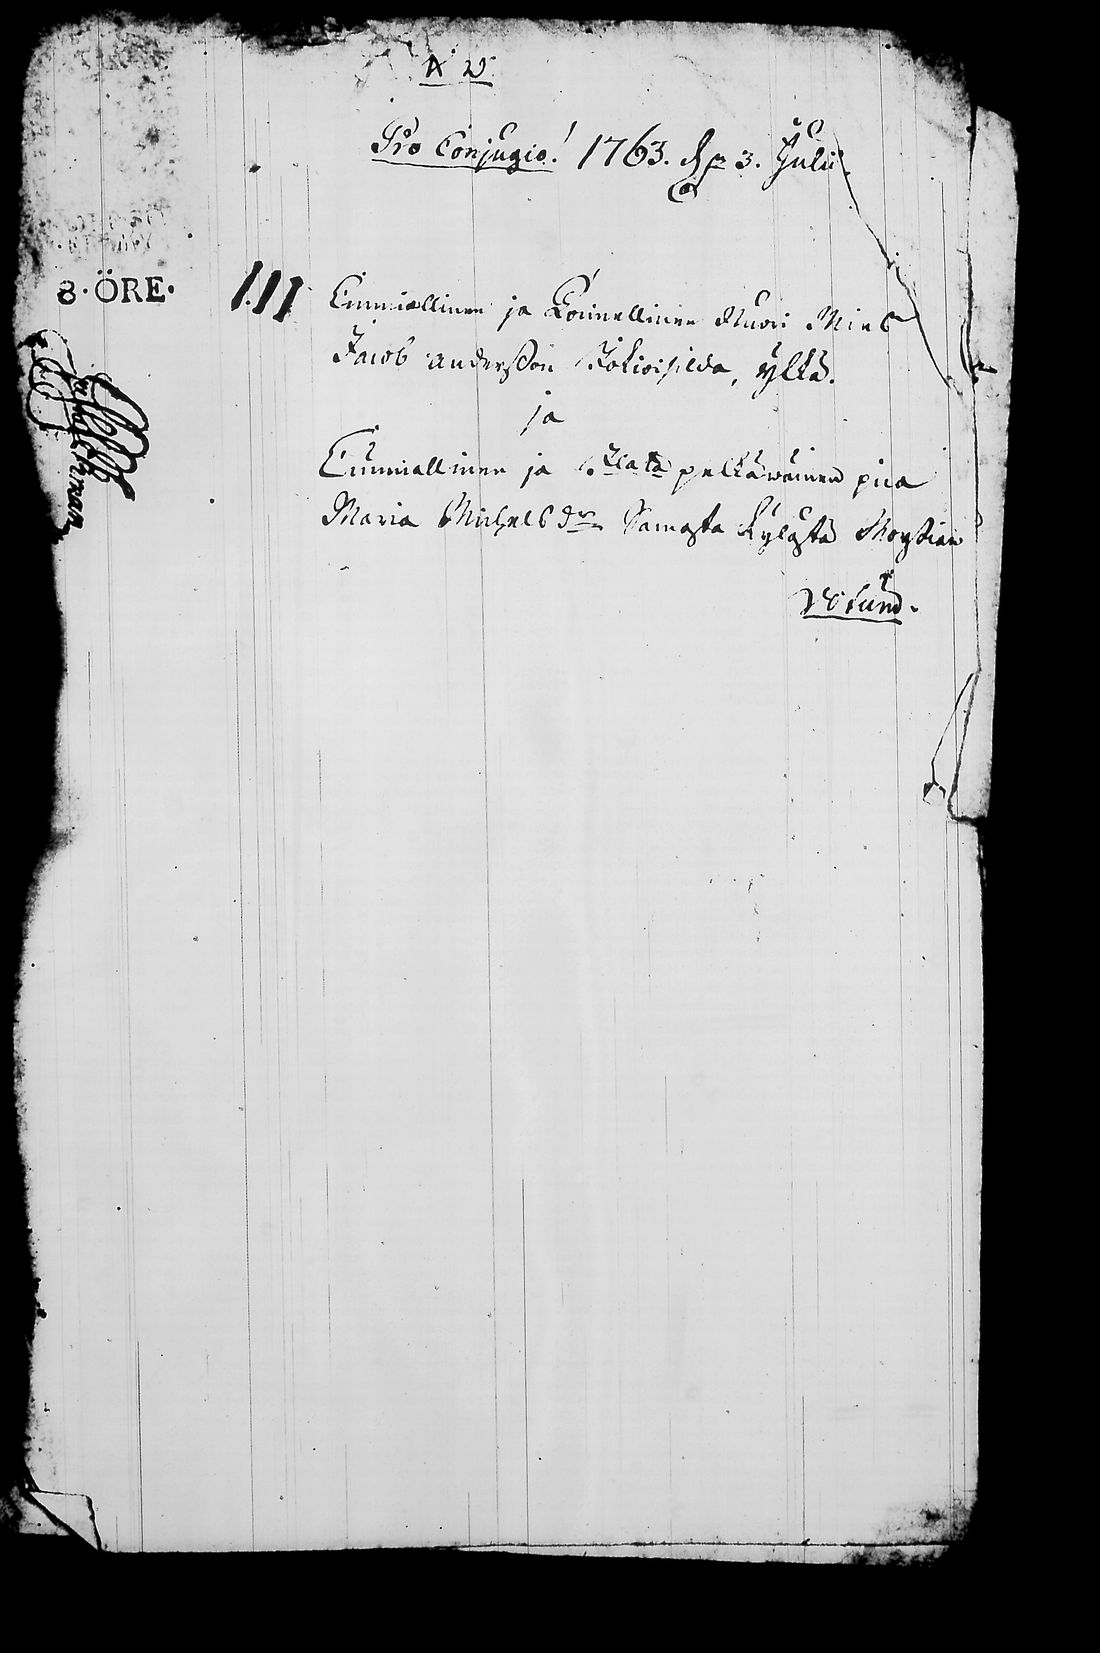 A. W.
Pro Conjugio! 1763. d. 3. Julii.
8·ÖRE·
111 Cunniallinen ja Toimellinen Nuori Mies
Jacob andersson Jokioisilda, ylkä.
ja
Cunniallinen ja pelkäwäinen pica
Maria Michels dr Samasta Kylästä Morsian